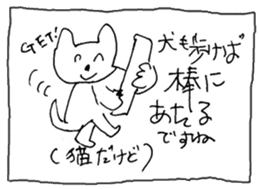 GET!
犬も歩けば
棒に
あたる
ですね
(猫だけど)